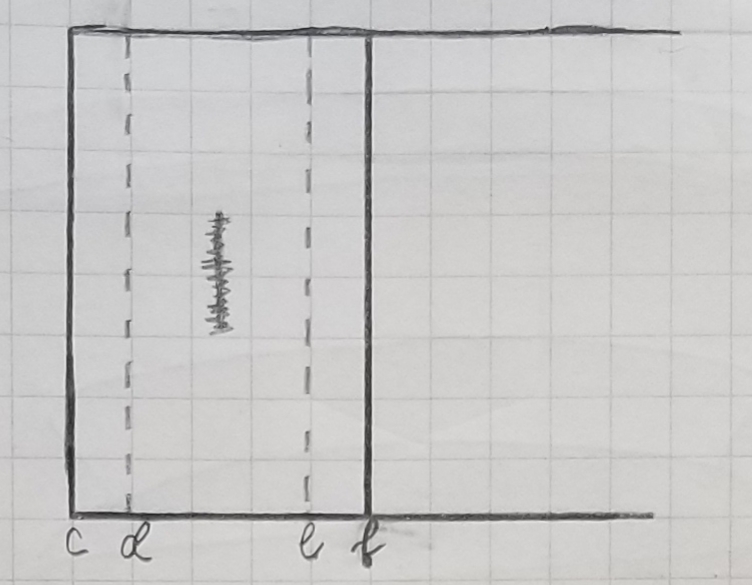 c d e f